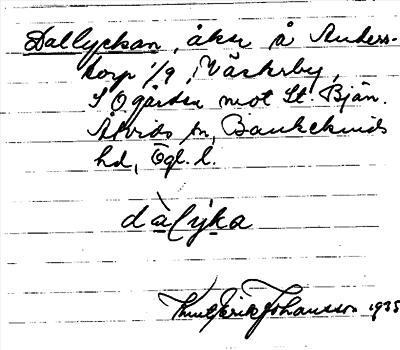 Dallyckan, åker å Anders-
torp 1/9, Väskerby,
S Ogärdea mot St. Bjän.
Älvids sn, Bankekinds
hd, Ögl. l.
dàlyka
Knut Erik Johansson 1935